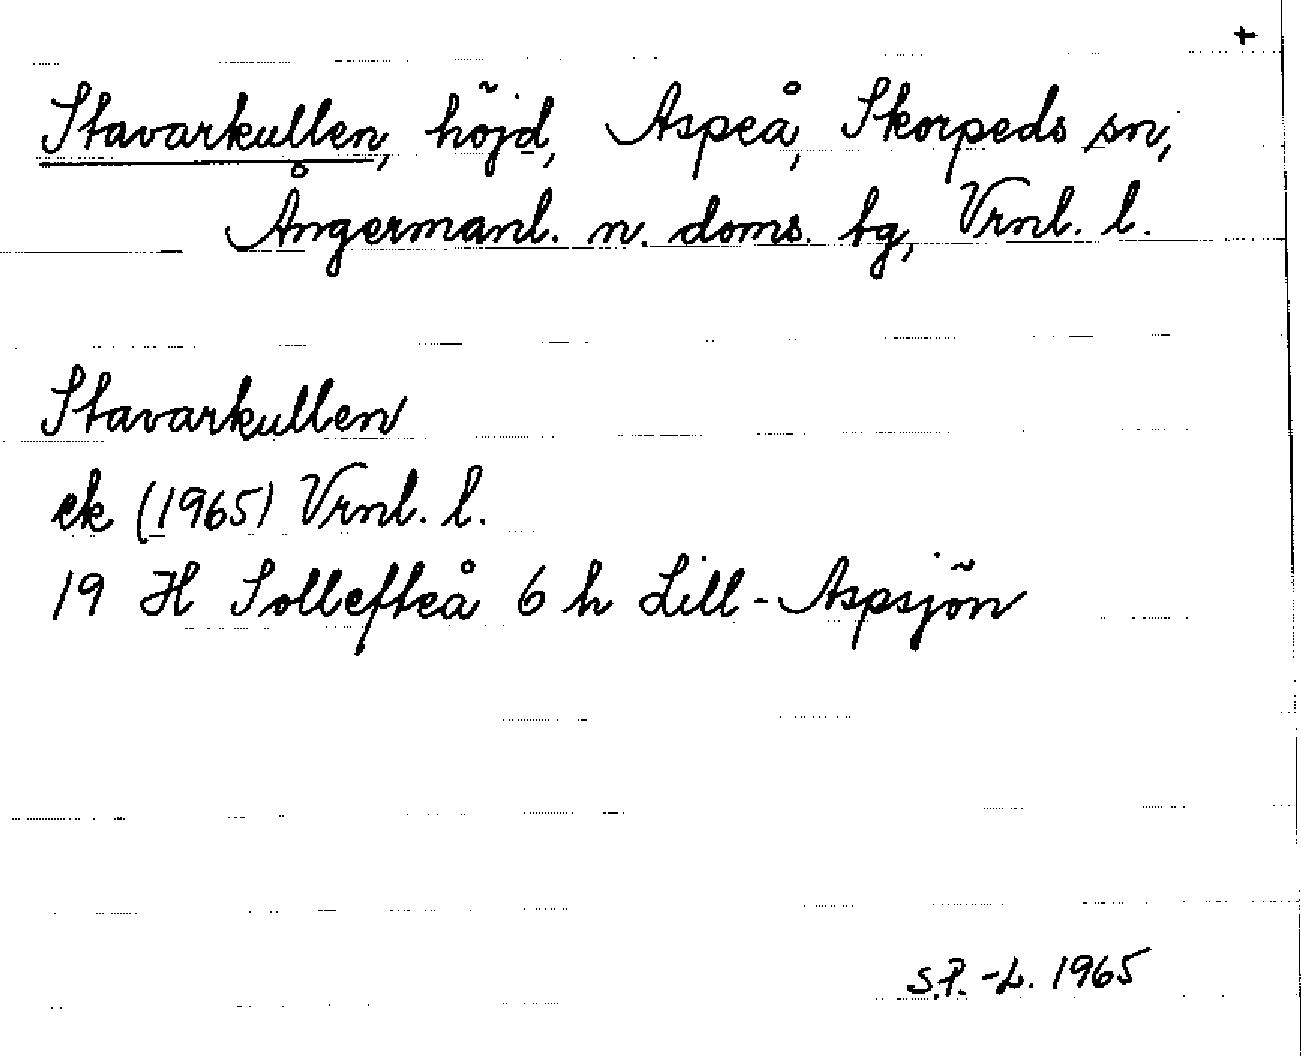 +
Stavarkullen, höjd, Aspeå, Skorpeds sn,
Ångermanl. n. doms. tg, Vrnl. l.
Stavarkullen
ek (1965) Vrnl. l.
19 H Sollefteå 6 h Lill-Aspsjön
S.P.-L. 1965